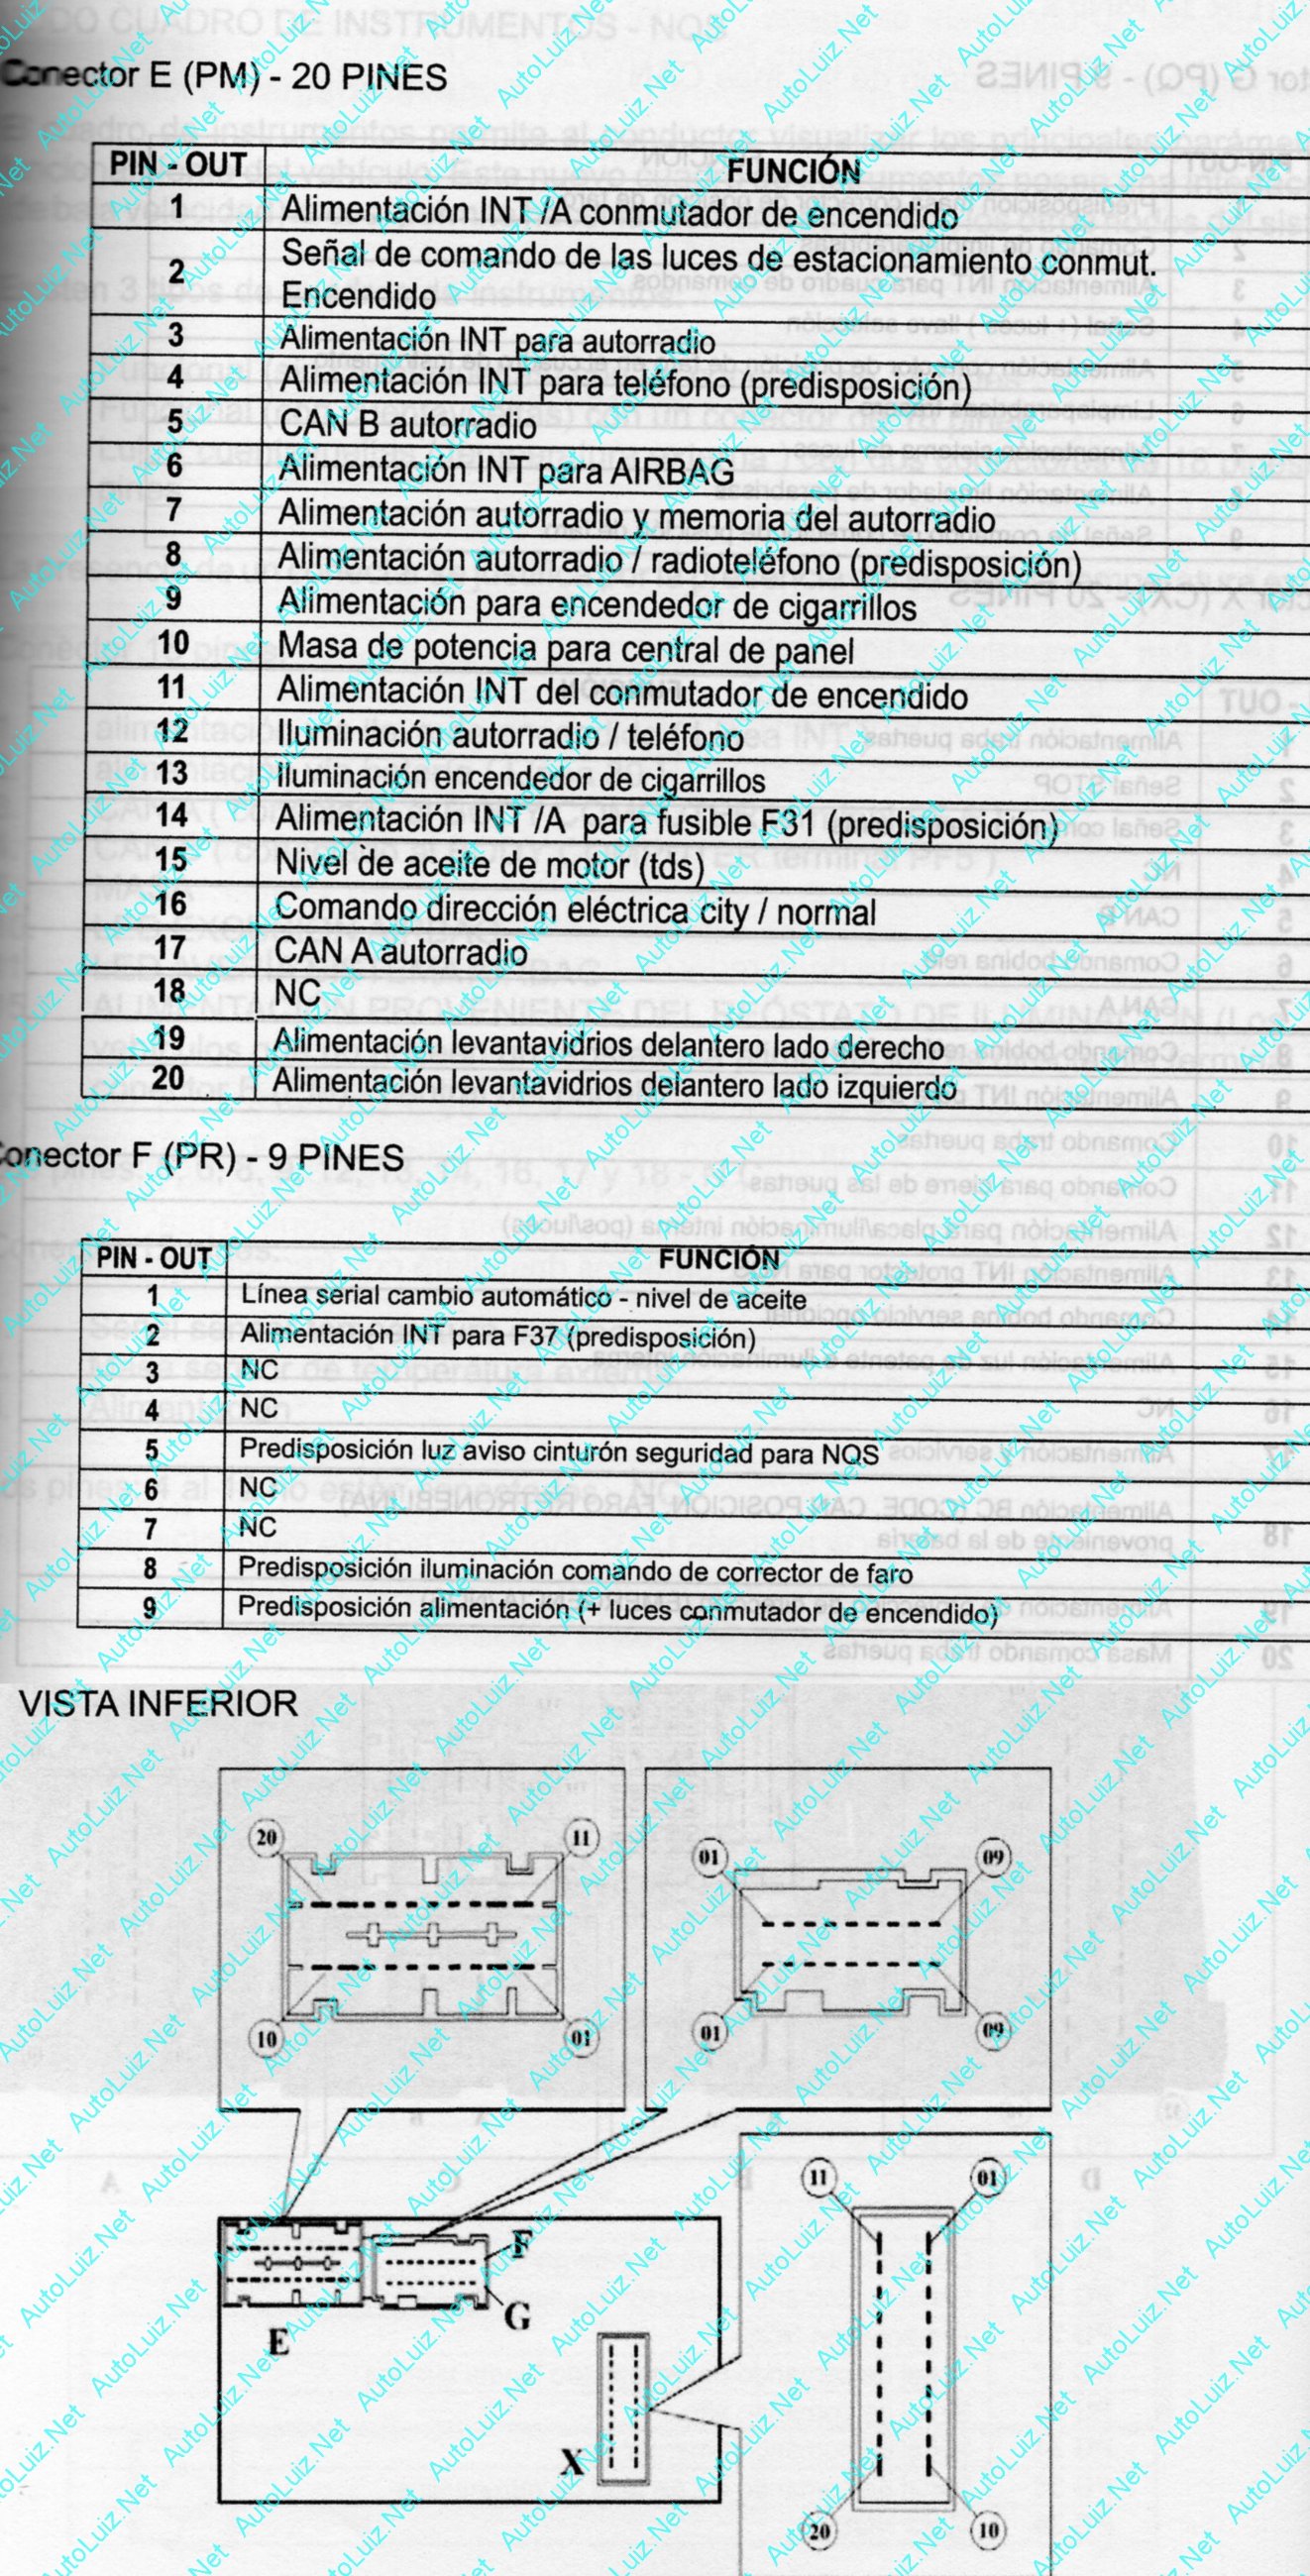 Conector E (PM) - 20 PINES
PIN - OUT FUNCIÓN
1 Alimentación INT /A conmutador de encendido
2 Señal de comando de las luces de estacionamiento conmut.
Encendido
3 Alimentación INT para autorradio
4 Alimentación INT para teléfono (predisposición)
5 CAN B autorradio
6 Alimentación INT para AIRBAG
7 Alimentación autorradio y memoria del autorradio
8 Alimentación autorradio / radioteléfono (predisposición)
9 Alimentación para encendedor de cigarrillos
10 Masa de potencia para central de panel
11 Alimentación INT del conmutador de encendido
12 Iluminación autorradio / teléfono
13 Iluminación encendedor de cigarrillos
14 Alimentación INT /A para fusible F31 (predisposición)
15 Nivel de aceite de motor (tds)
16 Comando dirección eléctrica city / normal
17 CAN A autorradio
18 NC
19 Alimentación levantavidrios delantero lado derecho
20 Alimentación levantavidrios delantero lado izquierdo
Conector F (PR) - 9 PINES
PIN - OUT FUNCIÓN
1 Línea serial cambio automático - nivel de aceite
2 Alimentación INT para F37 (predisposición)
3 NC
4 NC
5 Predisposición luz aviso cinturón seguridad para NQS
6 NC
7 NC
8 Predisposición iluminación comando de corrector de faro
9 Predisposición alimentación (+ luces conmutador de encendido)
VISTA INFERIOR
20 11
01 09
10 01
01 09
11 01
F
G
E
X
20 10
AutoLuiz.Net